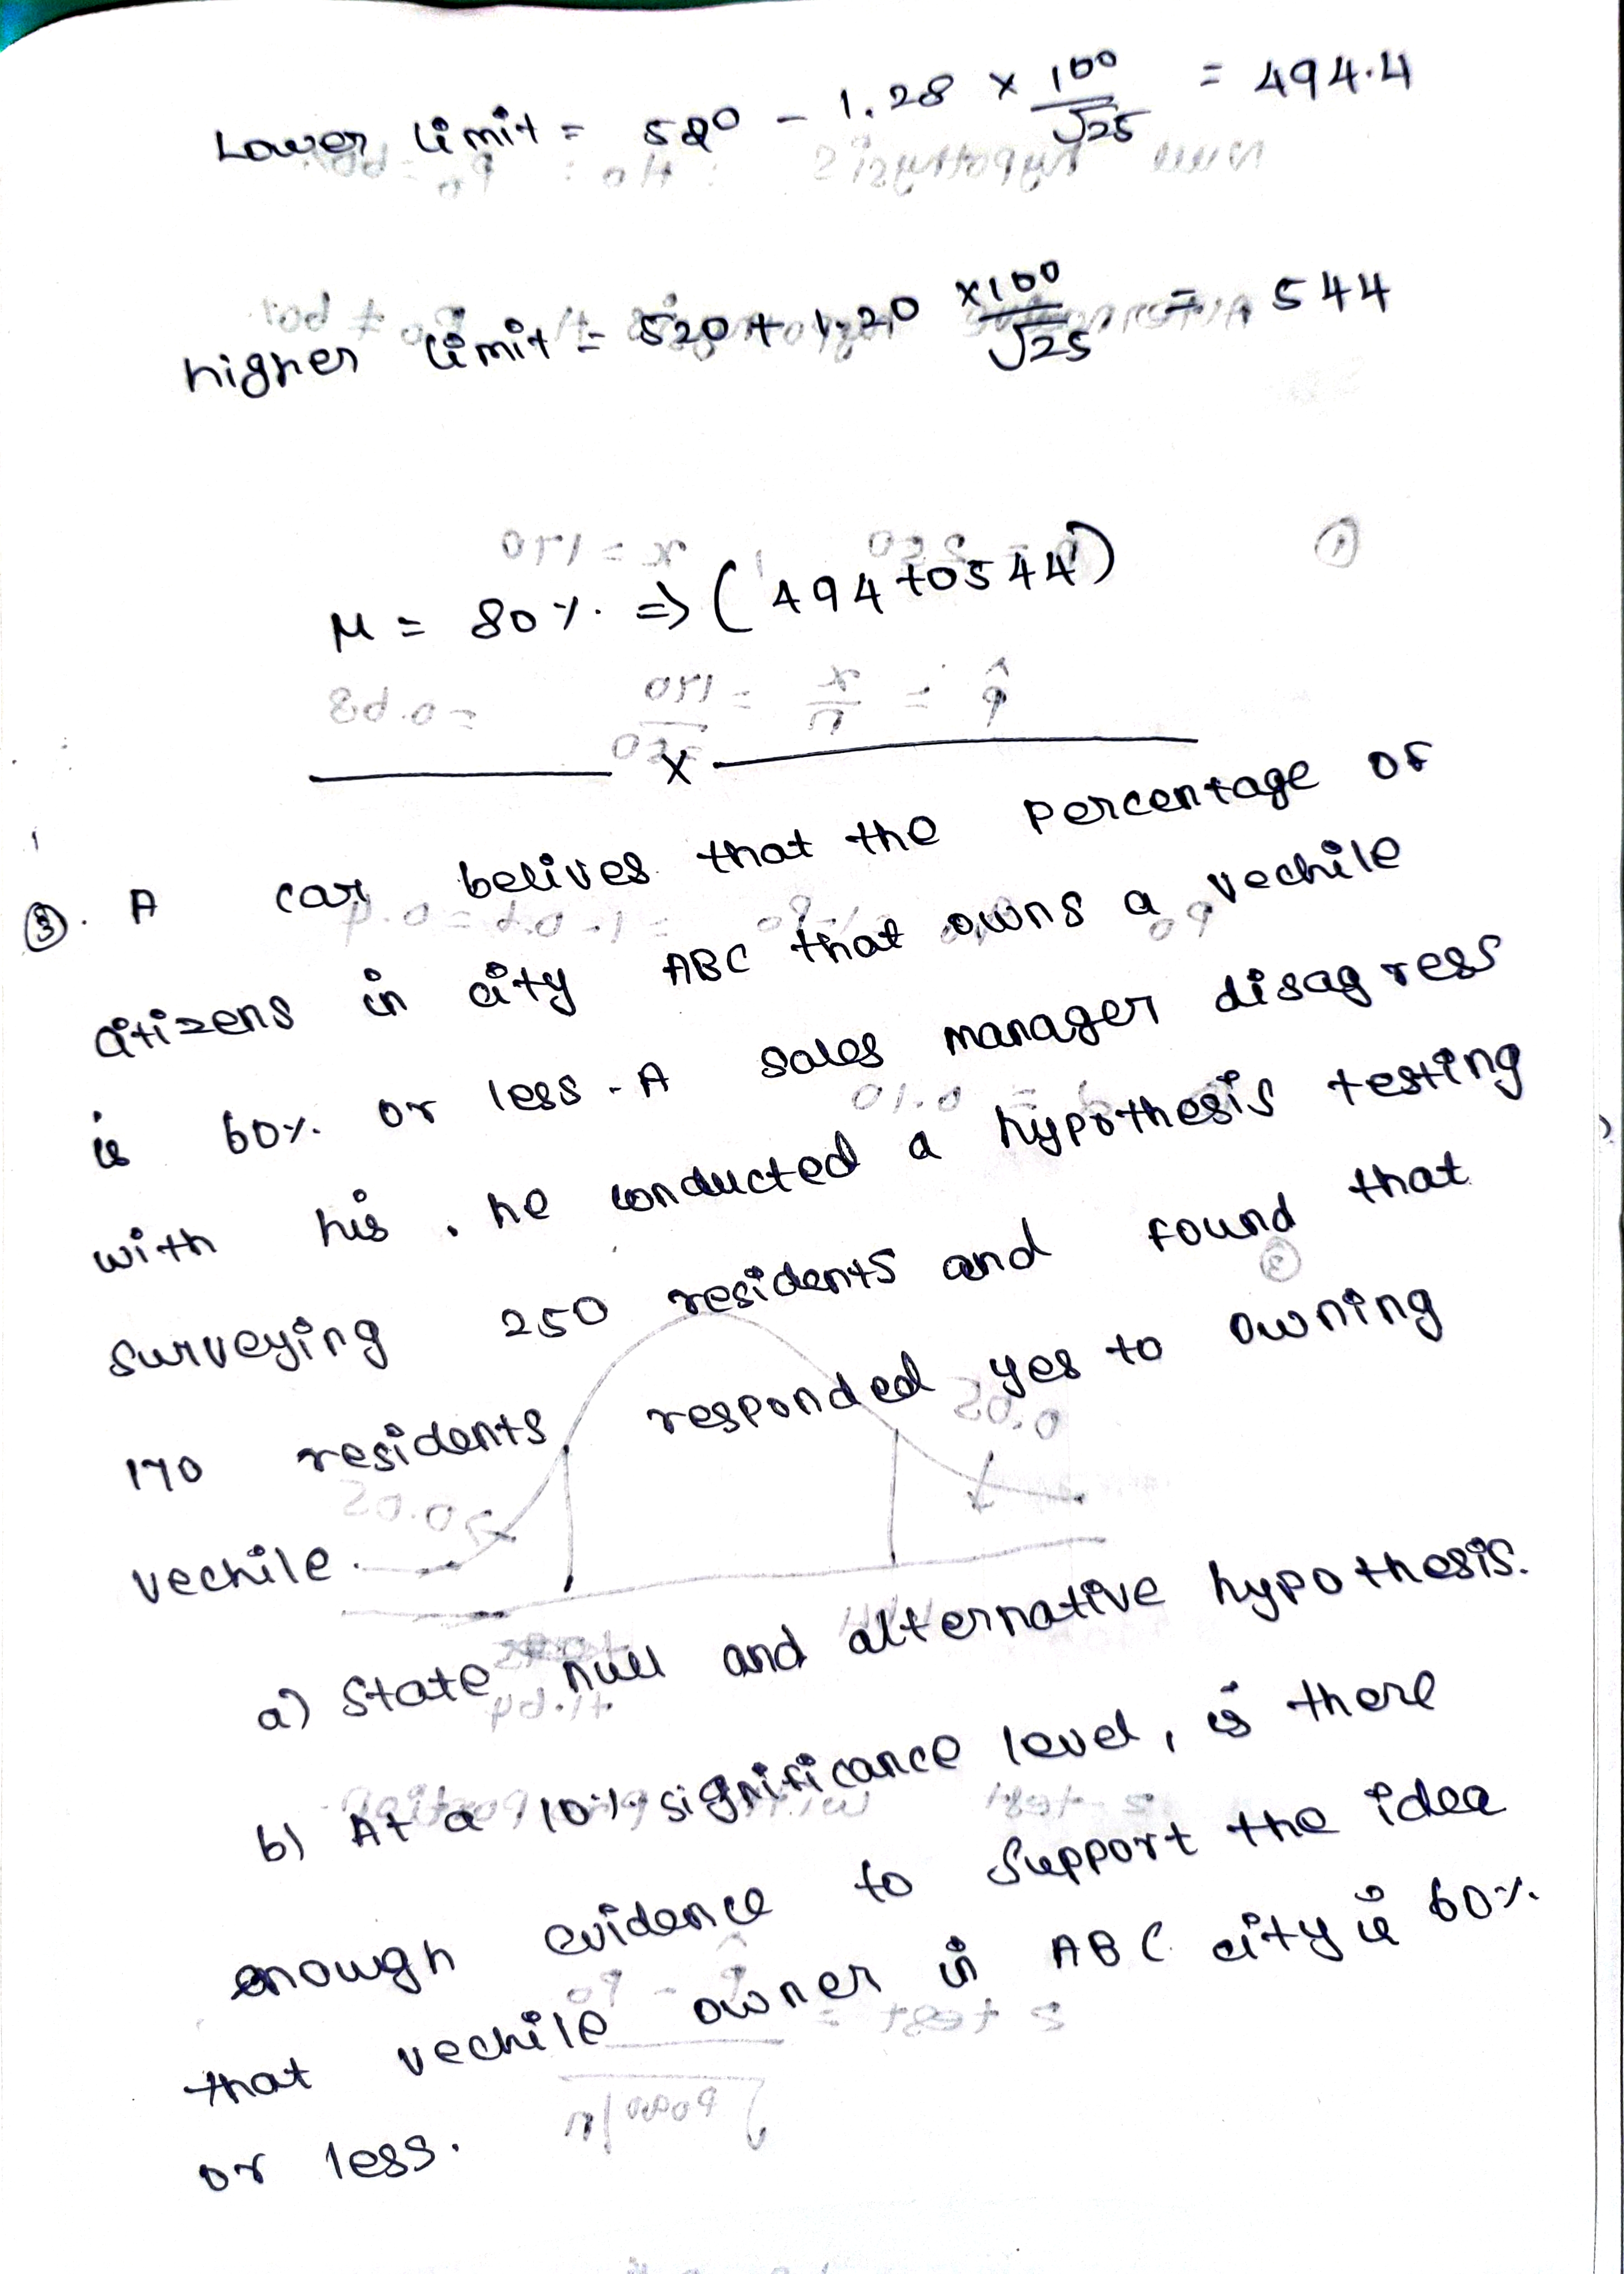 Lower limit = 520 - 1.28 × 100/√25 = 494.4
higher limit = 520 + 1.20 × 100/√25 = 544
μ = 80% => (494 to 544)
x
③. A car belives that the percentage of
citizens in city ABC that owns a vechile
is 60% or less. A sales manager disagress
with his. he conducted a hypothesis testing
surveying 250 residents and found that
170 residents responded yes to owning
vechile.
a) State null and alternative hypothesis.
b) At a 10% significance level, is there
enough evidence to support the idea
that vechile owner in ABC city is 60%
or less.